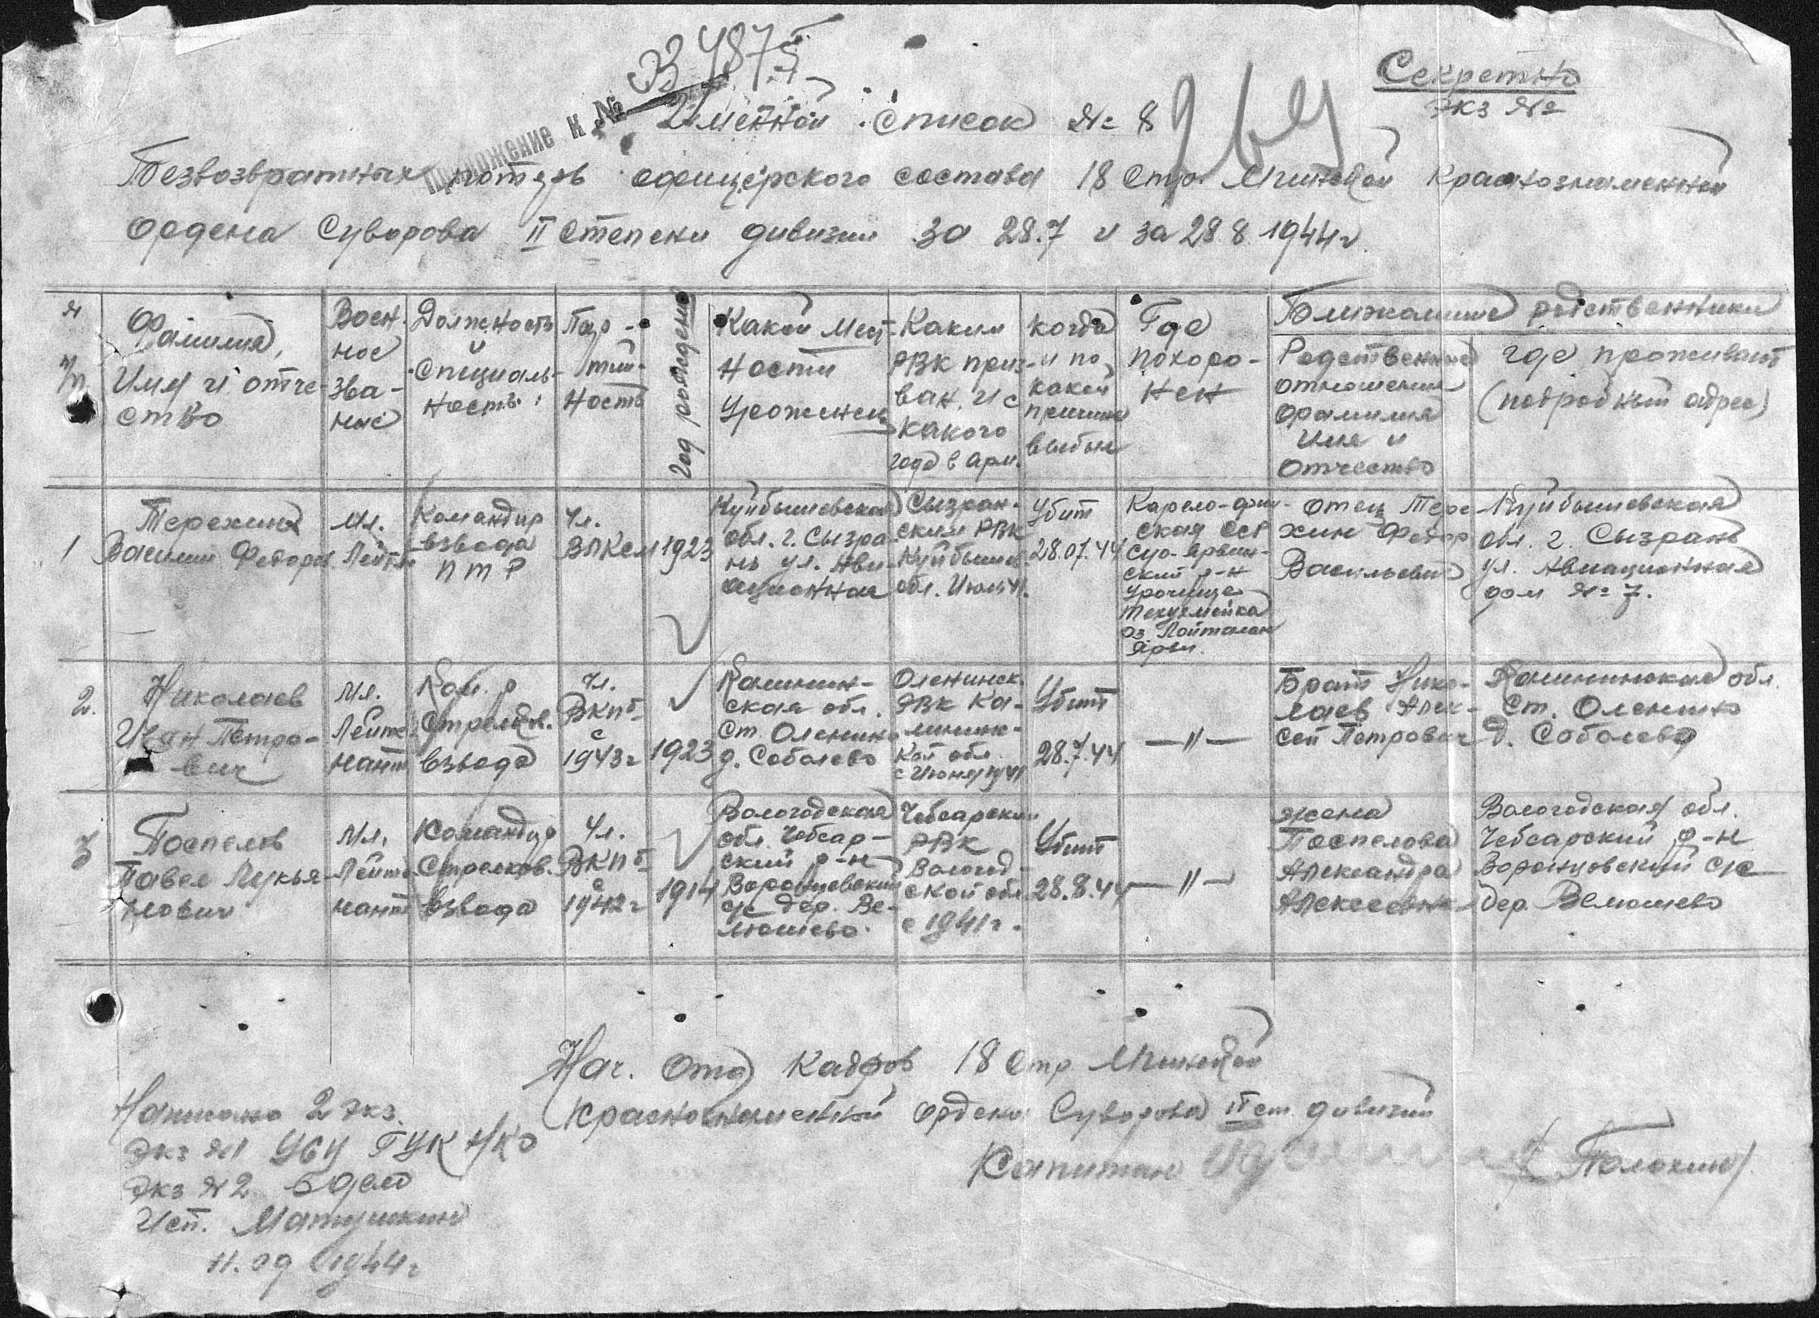 Секретно
экз №
Приложение к №
33487 с
Именной список № 8
264
Безвозвратных потерь офицерского состава 18 Стр. Мгинской Краснознаменной
Ордена Суворова II степени дивизии за 28.7 и за 28.8 1944г
№ п/п
Фамилия, Имя и отче-
ство
Воен-
ное
зва-
ние
Должность
и
специаль-
ность
Пар-
тий-
ность
Год рождения
Какой мест-
ности
урожениц
Каким
РВК приз-
ван и с
какого
года в Арм.
когда
и по
какой
причине
выбыл
Где
похоро-
нен
Ближайшие родственники
Родственное
отношение
фамилия
Имя и
отчество
где проживают
(подробный адрес)
1
Терехин
Василий Федоров.
Мл.
Лейт.
Командир
взвода
ПТР
Чл.
ВЛКСМ
1923
Куйбышевская
обл. г. Сызра-
нь ул. Ави-
ационная
Сызран-
ским РВК
Куйбышев.
обл. Июль 41.
Убит
28.07.44
Карело-фин
ская ССР
Суо-ярвин-
ский р-н
урочище
оз. Лойтолан
Ярви.
отец Тере-
хин Федор
Васильевич
Куйбышевская
обл. г. Сызрань
ул. Авиационная
дом № 7.
2.
Николаев
Иван Петро-
вич
Мл.
Лейте
нант
Ком-р
Стрелков.
взвода
Чл.
ВКПб
с
1943г
1923
Калинин-
ская обл.
ст. Оленино
д. Соболево
Оленинск.
РВК Ка-
линин-
кой обл.
с Июня 1941
Убит
28.7.44
—"—
Брат Нико-
лаев Алек-
сей Петрович
Калининская обл.
ст. Оленино
д. Соболево
3
Поспелов
Павел Лукья-
нович
Мл.
Лейте
нант
Командир
Стрелков.
взвода
Чл.
ВКПб
с
1942г
1914
Вологодская
обл. Чебсар-
ский р-н
Воронцовский
с/с дер. Ве-
люшево.
Чебсарским
РВК
Вологод-
ской обл
с 1941г.
Убит
28.8.44
—"—
жена
Поспелова
Александра
Алексеевна
Вологодская обл.
Чебсарский р-н
Воронцовский с/с
дер. Велюшево
Нач. Отд Кадров 18 Стр Мгинской
Краснознаменной ордена Суворова II ст. дивизии
Капитан
/Полохин/
Написано 2 экз.
Экз №1 УБУ ГУК НКО
Экз №2 в дело
Исп. Матушкин
11.09 1944г